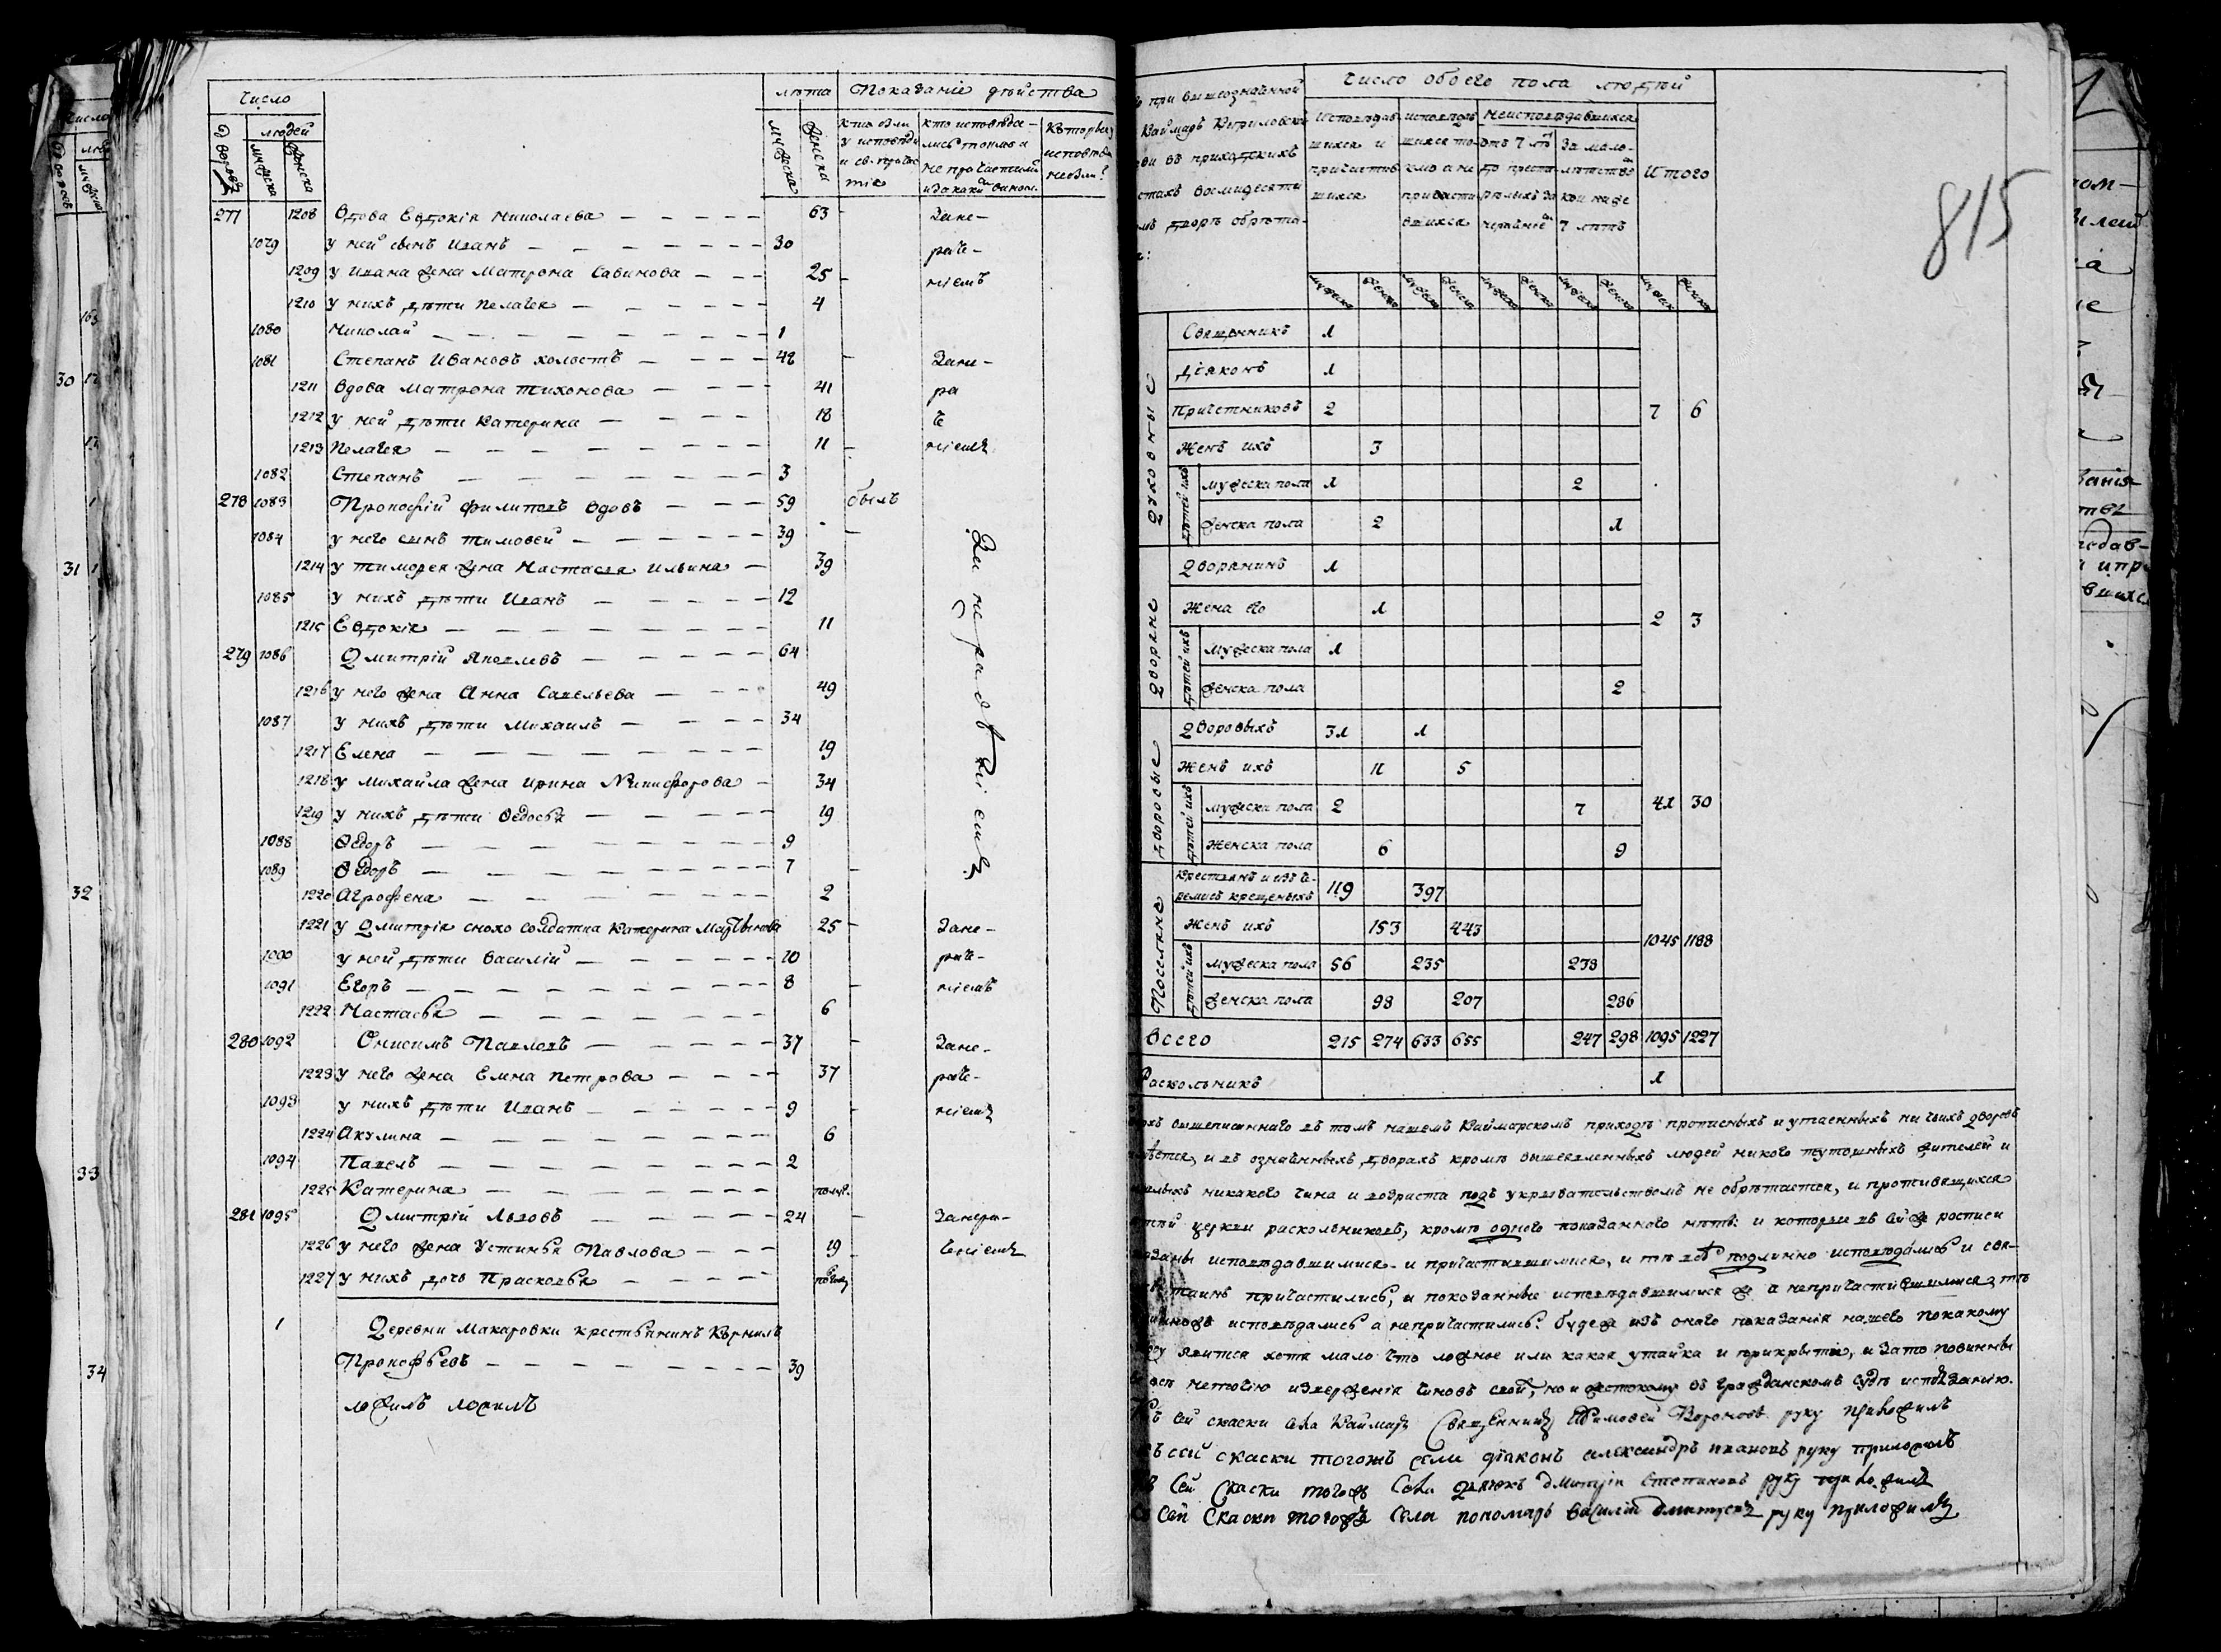 Число
людей
Дворовъ
мужеска
женска
лѣта
мужеска
женска
Показаніе дѣйства
кто были у исповѣди и св. причастія
кто исповѣдались токмо а не причастились и за какимъ винословіем
которые у исповѣди не были?
277 1208 Вдова Евдокія Николаева 63 Зане-
1079 у ней сынъ Иванъ 30 раче-
1209 у Ивана жена Матрона Савинова 25 ніемъ
1210 у нихъ дѣти Пелагея 4
1080 Николай 1
1081 Степанъ Ивановъ холостъ 42 Зане-
1211 Вдова Матрона Тихонова 41 ра
1212 у ней дѣти Катерина 18 че
1213 Пелагея 11 ніемъ
1082 Степанъ 3
278 1083 Прокофій Филиповъ вдовъ 59 былъ
1084 у него сынъ Тимофей 39
1214 у Тимофея жена Настасья Ильина 39
За нераченіемъ
1085 у нихъ дѣти Иванъ 12
1215 Евдокія 11
279 1086 Дмитрій Яковлевъ 64
1216 у него жена Анна Савельева 49
1087 у нихъ дѣти Михаилъ 34
1217 Елена 19
1218 у Михайла жена Ирина Никифорова 34
1219 у нихъ дѣти Федосья 19
1088 Федоръ 9
1089 Федоръ 7
1220 Агрофена 2
1221 у Дмитрія сноха солдатка Катерина Матвѣева 25 Зане-
1090 у ней дѣти Василій 10 раче-
1091 Егоръ 8 ніемъ
1222 Настасья 6
280 1092 Онисимъ Павловъ 37 Зане-
1223 у него жена Елена Петрова 37 раче-
1093 у нихъ дѣти Иванъ 9 ніемъ
1224 Акулина 6
1094 Павелъ 2
1225 Катерина полуг.
281 1095 Дмитрій Львовъ 24 Занера-
1226 у него жена Устинья Павлова 19 ченіемъ
1227 у нихъ дочь Прасковья
1 Деревни Макаровки крестьянинъ Корнилъ
Прокофьевъ 39
815
при вышеозначенной
Каймаръ Кириловской
въ приходскихъ
восмидесяти
дворѣ обрѣта-
Число обоего пола людей
Исповѣдавшихся и причастившихся
исповѣдавшихся токмо а не причастившихся
Неисповѣдавшихся
отъ 7 лѣтъ до престарѣлыхъ за
За малолѣтствомъ кои ниже 7 лѣтъ
Итого
мужеска женска мужеска женска мужеска женска мужеска женска мужеска женска
Духовные
Священникъ 1
Діяконъ 1
Причетниковъ 2 7 6
Женъ ихъ 3
дѣтей ихъ
мужеска пола 1 2
женска пола 2 1
Дворяне
Дворянинъ 1
Жена его 1 2 3
дѣтей ихъ
мужеска пола 1
женска пола 2
Дворовые
Дворовыхъ 31 1
Женъ ихъ 11 5
дѣтей ихъ
мужеска пола 2 7 41 30
женска пола 6 9
Поселяне
Крестьянъ и изъ черемисъ крещеныхъ 119 397
Женъ ихъ 153 443 1045 1188
дѣтей ихъ
мужеска пола 56 235 238
женска пола 98 207 286
Всего 215 274 633 655 247 298 1095 1227
Раскольникъ 1
вышеписаннаго въ томъ нашемъ Каймарскомъ приходѣ прописныхъ и утаенныхъ ни чьихъ дворовъ
и въ означенныхъ дворахъ кромѣ вышеявленныхъ людей никого тутошныхъ жителей и
никакого чина и возраста подъ укрывательствомъ не обрѣтается, и противящихся
церкви раскольниковъ, кромѣ одного показанного нѣтъ: и которые въ сей же росписи
исповѣдавшимися и причастившимися, и тѣ всѣ подлинно исповѣдались и свя-
таинъ причастились, и показанные исповѣдавшимися же а непричастившимися, тѣ
исповѣдались а непричастились. Будеже изъ оного показанія нашего покакому
явится хотя мало что ложное или какая утайка и прикрытіе, и Зато повинны
неточію изверженія чиновъ своихъ, но и жестокому въ гражданскомъ судѣ истязанію.
сей скаски села Каймаръ Священникъ Тимофей Вороновъ руку приложилъ
сей скаски тогожъ села діяконъ александръ ивановъ руку приложилъ
Сей Скаски тогожъ Села дмитріи Степановъ руку приложилъ
Сей Скаски тогожъ Села пономарь василій дмитреевъ руку приложилъ